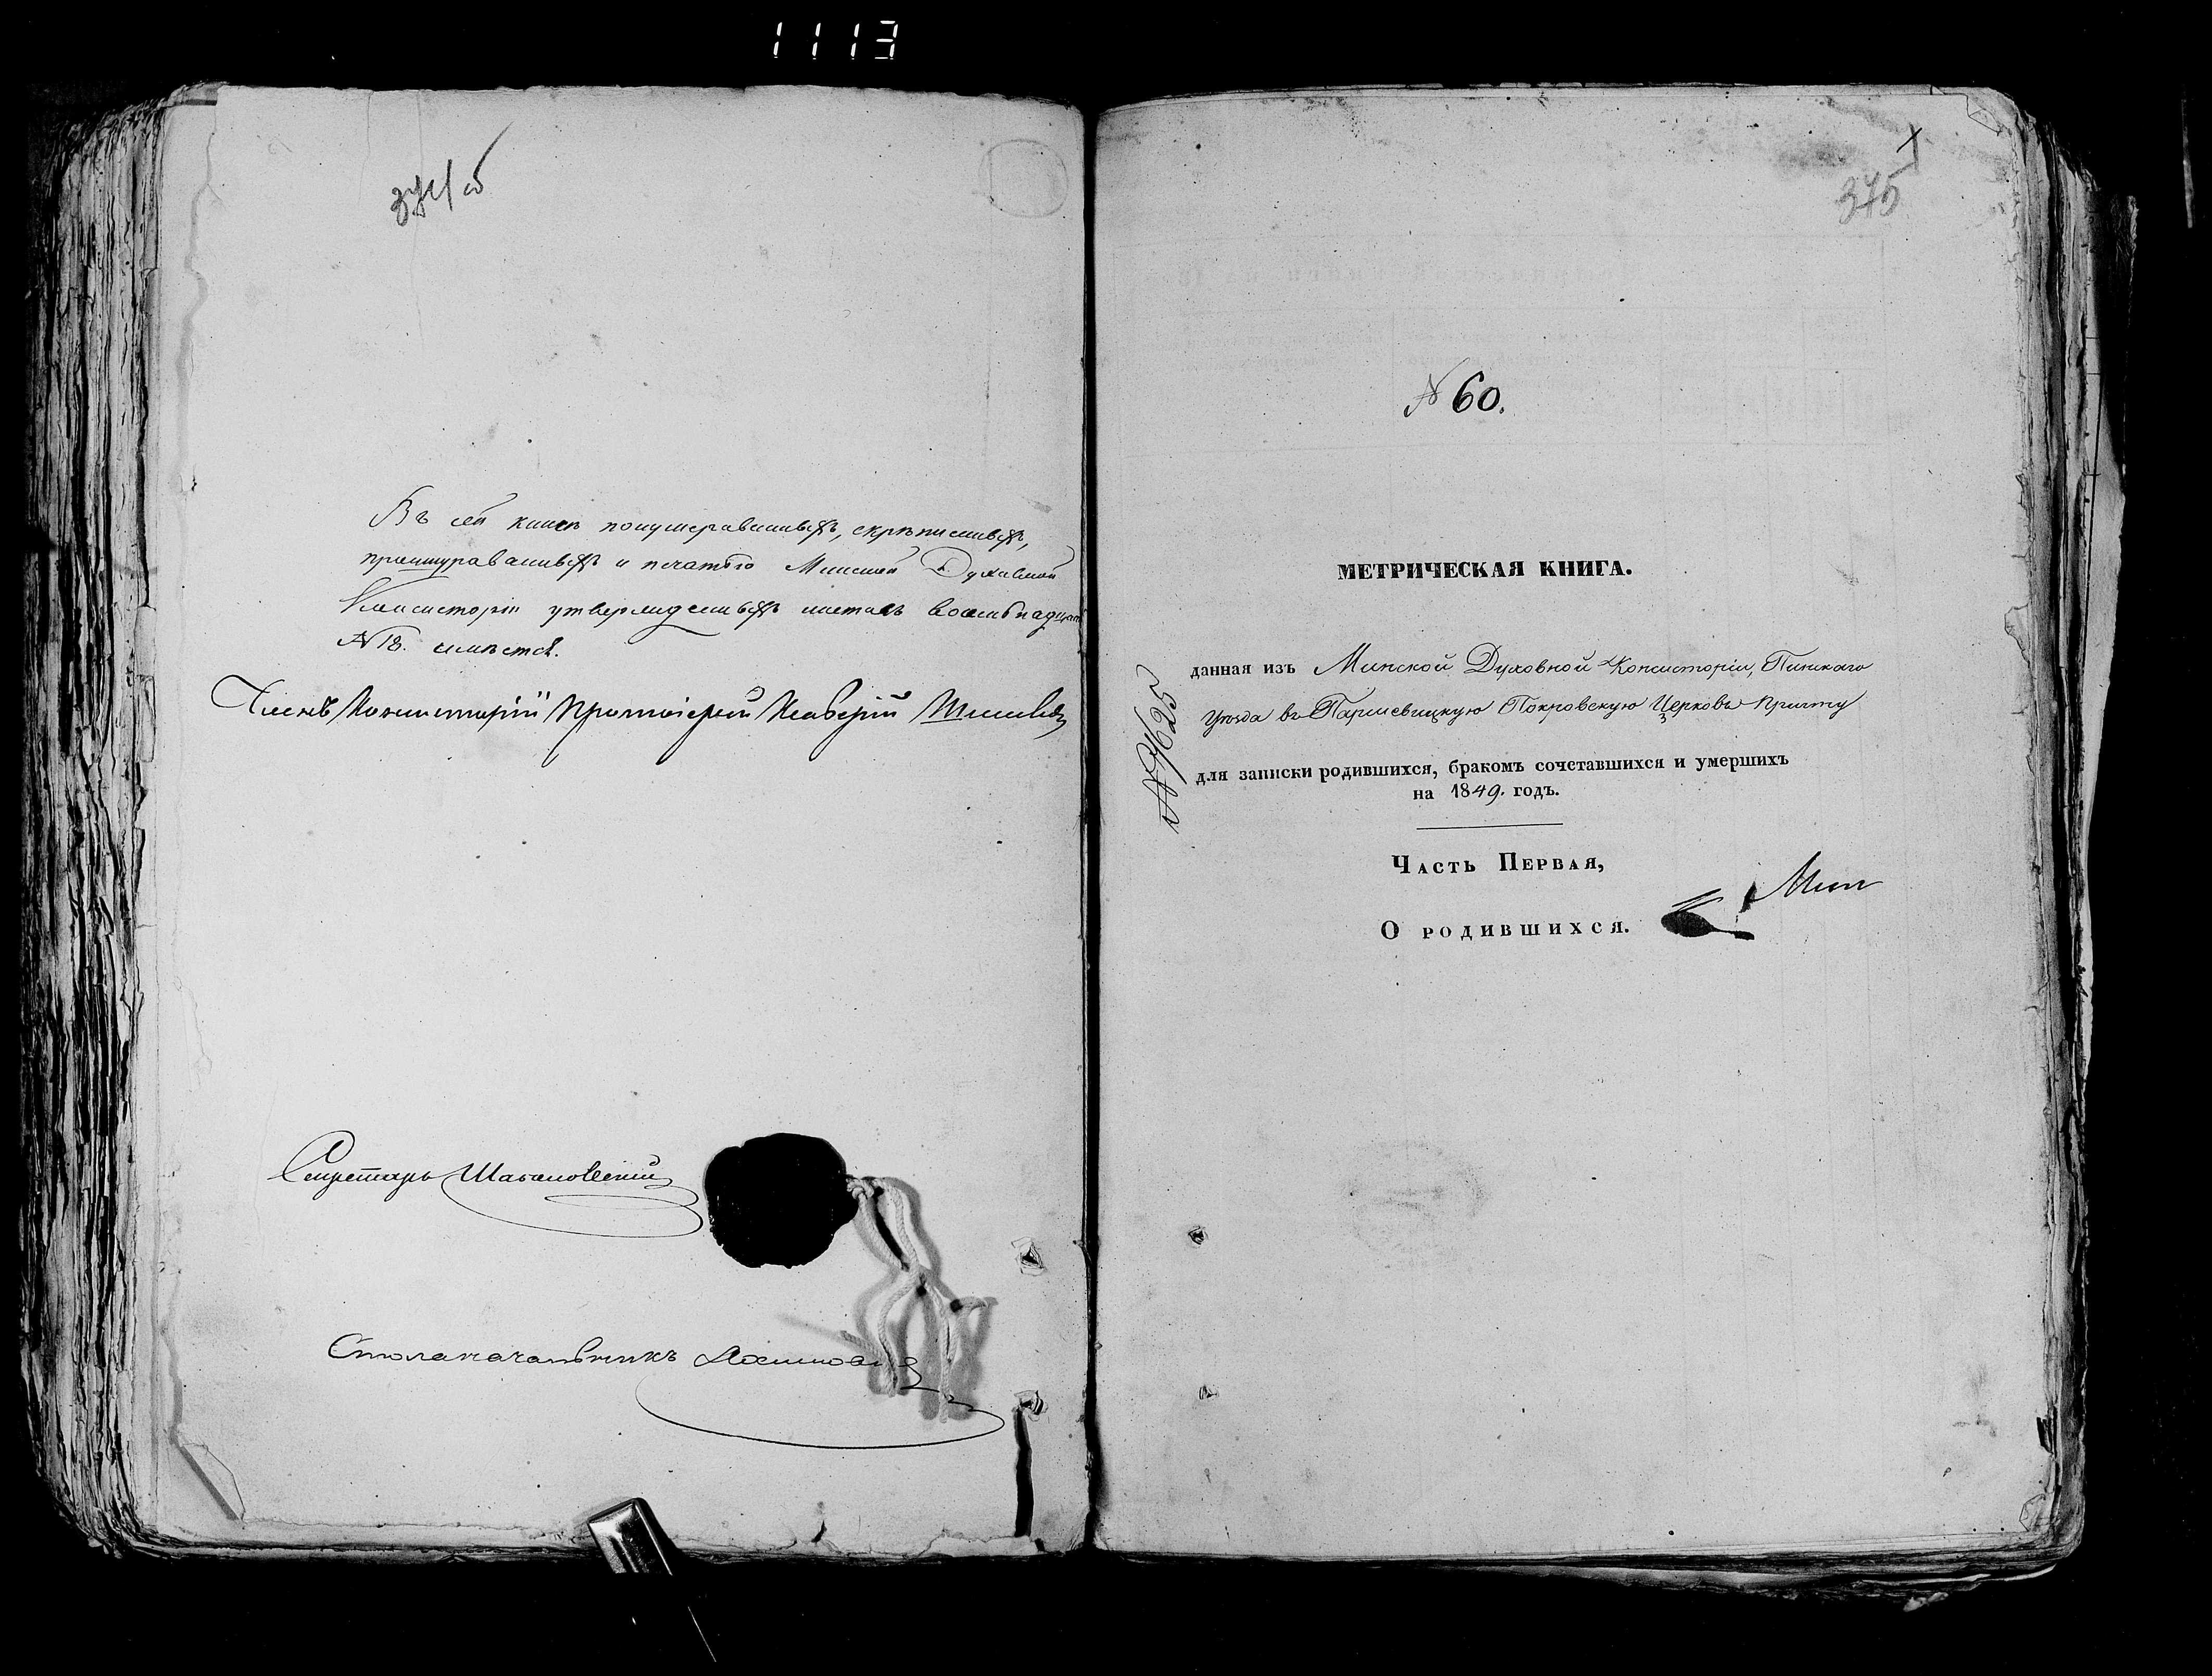 1113
374 об
Въ сей книгѣ понумерованныхъ, скрѣпленныхъ,
прошнурованныхъ и печатью Минской Духовной
Консисторіи утвержденныхъ листовъ восемнадцать
№ 18. имѣется.
Членъ Консисторіи Протоіерей
Секретарь
Столоначальникъ
375
№ 60.
МЕТРИЧЕСКАЯ КНИГА.
данная изъ Минской Духовной Консисторіи, Пинскаго
Уѣзда въ Паршевицкую Покровскую Церковь Причту
№ 9625
для записки родившихся, бракомъ сочетавшихся и умершихъ
на 1849. годъ.
Часть Первая,
О родившихся.